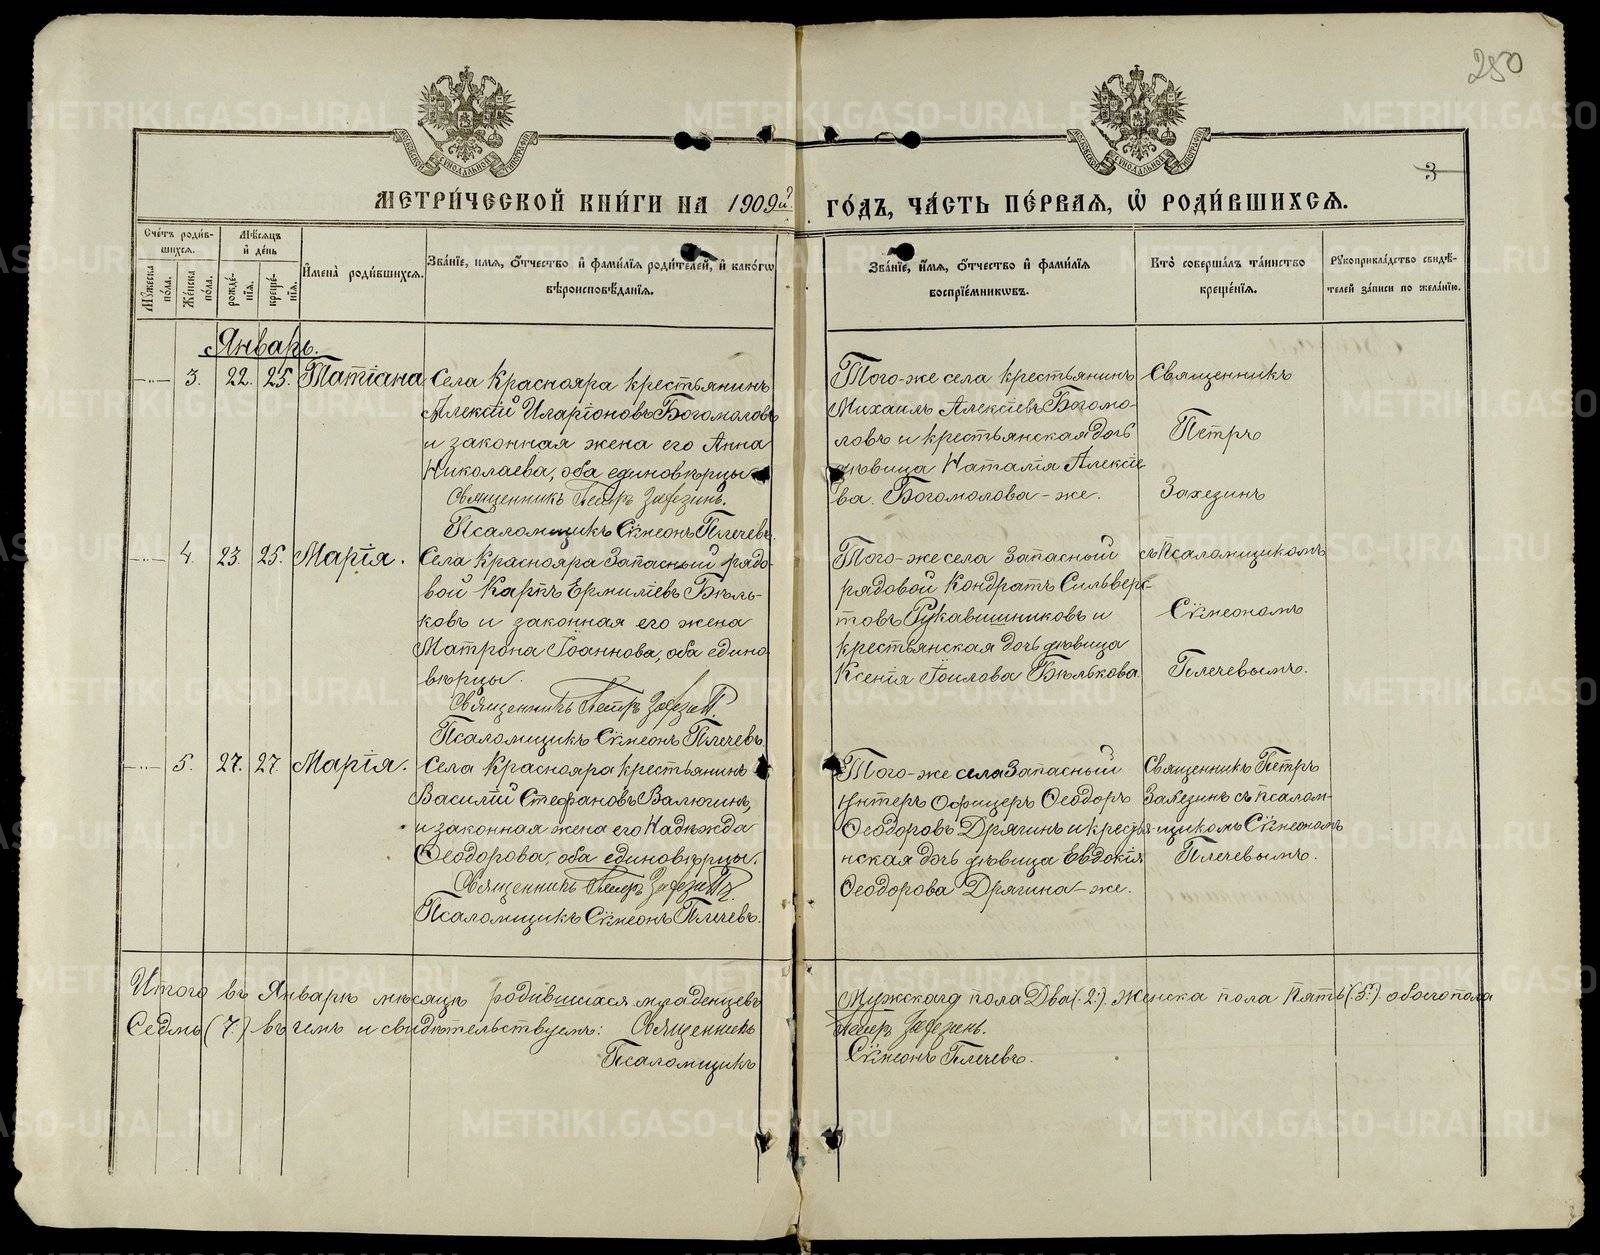 280
3
МЕТРИ́ЧЕСКОЙ КНИ́ГИ НА 1909й ГО́ДЪ, ЧА́СТЬ ПЕ́РВАЯ, Ѡ РОДИ́ВШИХСѦ.
Сче́тъ роди́в-
шихся.
Мѣ́сяцъ
и҆ де́нь
Мꙋ́жеска по́ла.
Же́нска по́ла.
рожде́-
нїѧ.
креще́-
нїѧ.
И҆мена̀ роди́вшихсѧ.
Зва́нїе, и҆мѧ, ѻ҆́тчество и҆ фами́лїѧ роди́телей, и҆ како́гѡ
вѣроисповѣ́данїѧ.
Зва́нїе, и҆́мѧ, ѻ҆́тчество и҆ фами́лїѧ
воспрїе́мникѡвъ.
Кто̀ соверша́лъ та́инство
креще́нїѧ.
Рꙋкоприкла́дство свидѣ́-
телей за́писи по жела́нїю.
Январь.
3. 22. 25. Татіана
Села Краснояра крестьянинъ
Алексій Иларіоновъ Богомоловъ
и законная жена его Анна
Николаева, оба единовѣрцы
Священникъ Петръ
Псаломщикъ Сѷмеонъ Плечевъ.
Того-же села крестьянинъ
Михаилъ Алексіевъ Богомо-
ловъ и крестьянская дочь
дѣвица Наталія Алексіе
ва Богомолова-же.
Священникъ
Петръ
Захезинъ
4. 23. 25. Марія.
Села Краснояра Запасный рядо-
вой Карпъ Ермиліевъ Бѣль-
ковъ и законная его жена
Матрона Іоаннова, оба едино-
вѣрцы.
Священникъ Петръ
Псаломщикъ Сѷмеонъ Плечевъ
Того-же села Запасный
рядовой Кондратъ Сильверс-
товъ Рукавишниковъ и
крестьянская дочь дѣвица
Ксенія Іоилова Бѣлькова
съ псаломщикомъ
Сѷмеономъ
Плечевымъ.
5. 27. 27. Марія.
Села Краснояра крестьянинъ
Василій Стефановъ Валюгинъ,
и законная жена его Надежда
Ѳеодорова, оба единовѣрцы.
Священникъ Петръ
Псаломщикъ Сѷмеонъ Плечевъ.
Того-же села Запасный
Унтеръ Офицеръ Ѳеодоръ
Ѳеодоровъ Дрягинъ и крестья-
нская дочь дѣвица Евдокія
Ѳеодорова Дрягина-же.
Священникъ Петръ
Захезинъ съ псалом-
щикомъ Сѷмеономъ
Плечевымъ.
Итого въ Январѣ мѣсяцѣ родившихся младенцевъ Мужскаго пола Два (2.) женска пола пять (5.) обоего пола
Седмь (7.) въ чемъ и свидѣтельствуемъ: Священникъ Петръ
Псаломщикъ Сѷмеонъ Плечевъ.
METRIKI.GASO-URAL.RU